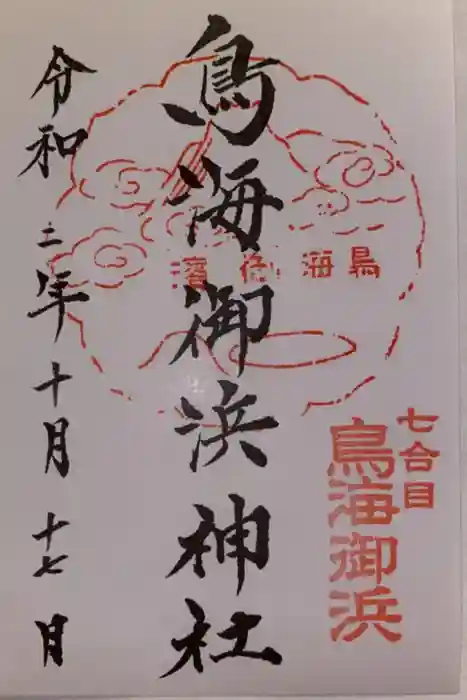 七合目
鳥海御浜
鳥海御濱
鳥海御浜神社
令和二年十月十七日